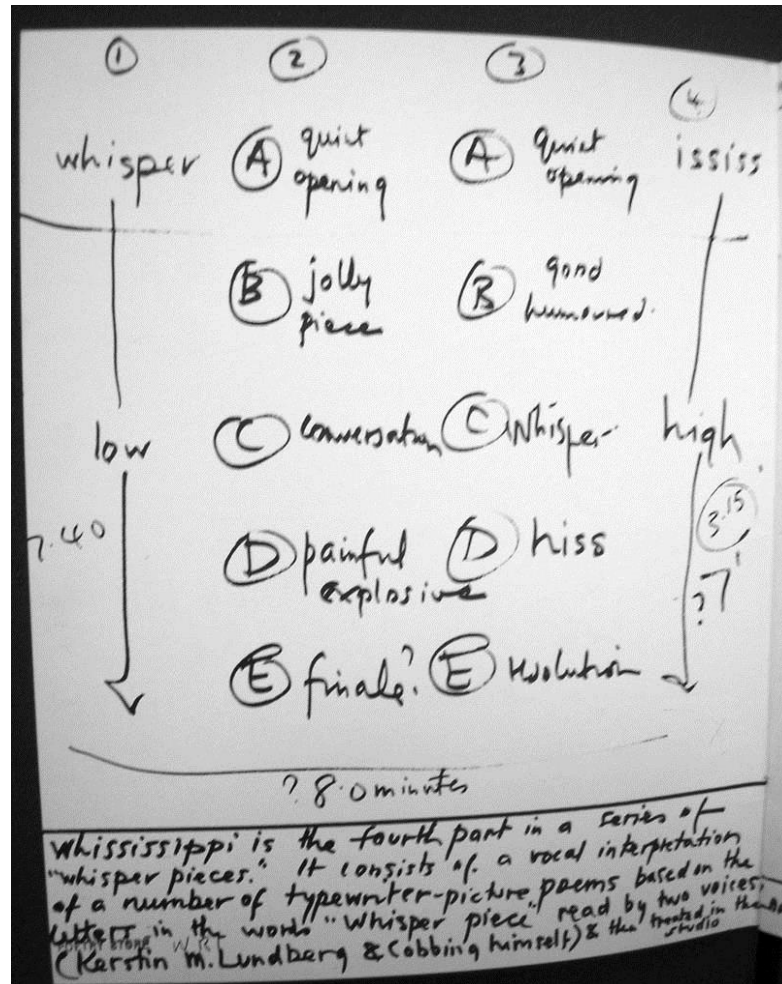 1 2 3 4
whisper A quiet A quiet ississ
opening opening
B jolly B good
piece humoured.
low C conversation C Whisper high
7.40 3.15
D painful D hiss ? 7'
explosive
E finale? E resolution
? 8.0 minutes
whississippi is the fourth part in a series of
"whisper pieces." It consists of a vocal interpretation
of a number of typewriter-picture poems based on the
letters in the words "Whisper piece" read by two voices,
(Kerstin M. Lundberg & Cobbing himself) & then treated in the
studio